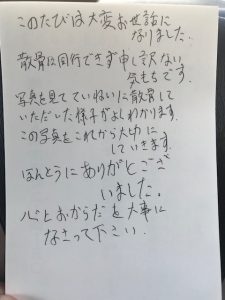 このたびは大変お世話に
なりました。
散骨に同行できず申し訳ない
気もちです。
写真を見てていねいに散骨して
いただいた様子がよくわかります。
この写真をこれから大切に
していきます。
ほんとうにありがとうござ
いました。
心とおからだを大事に
なさって下さい。